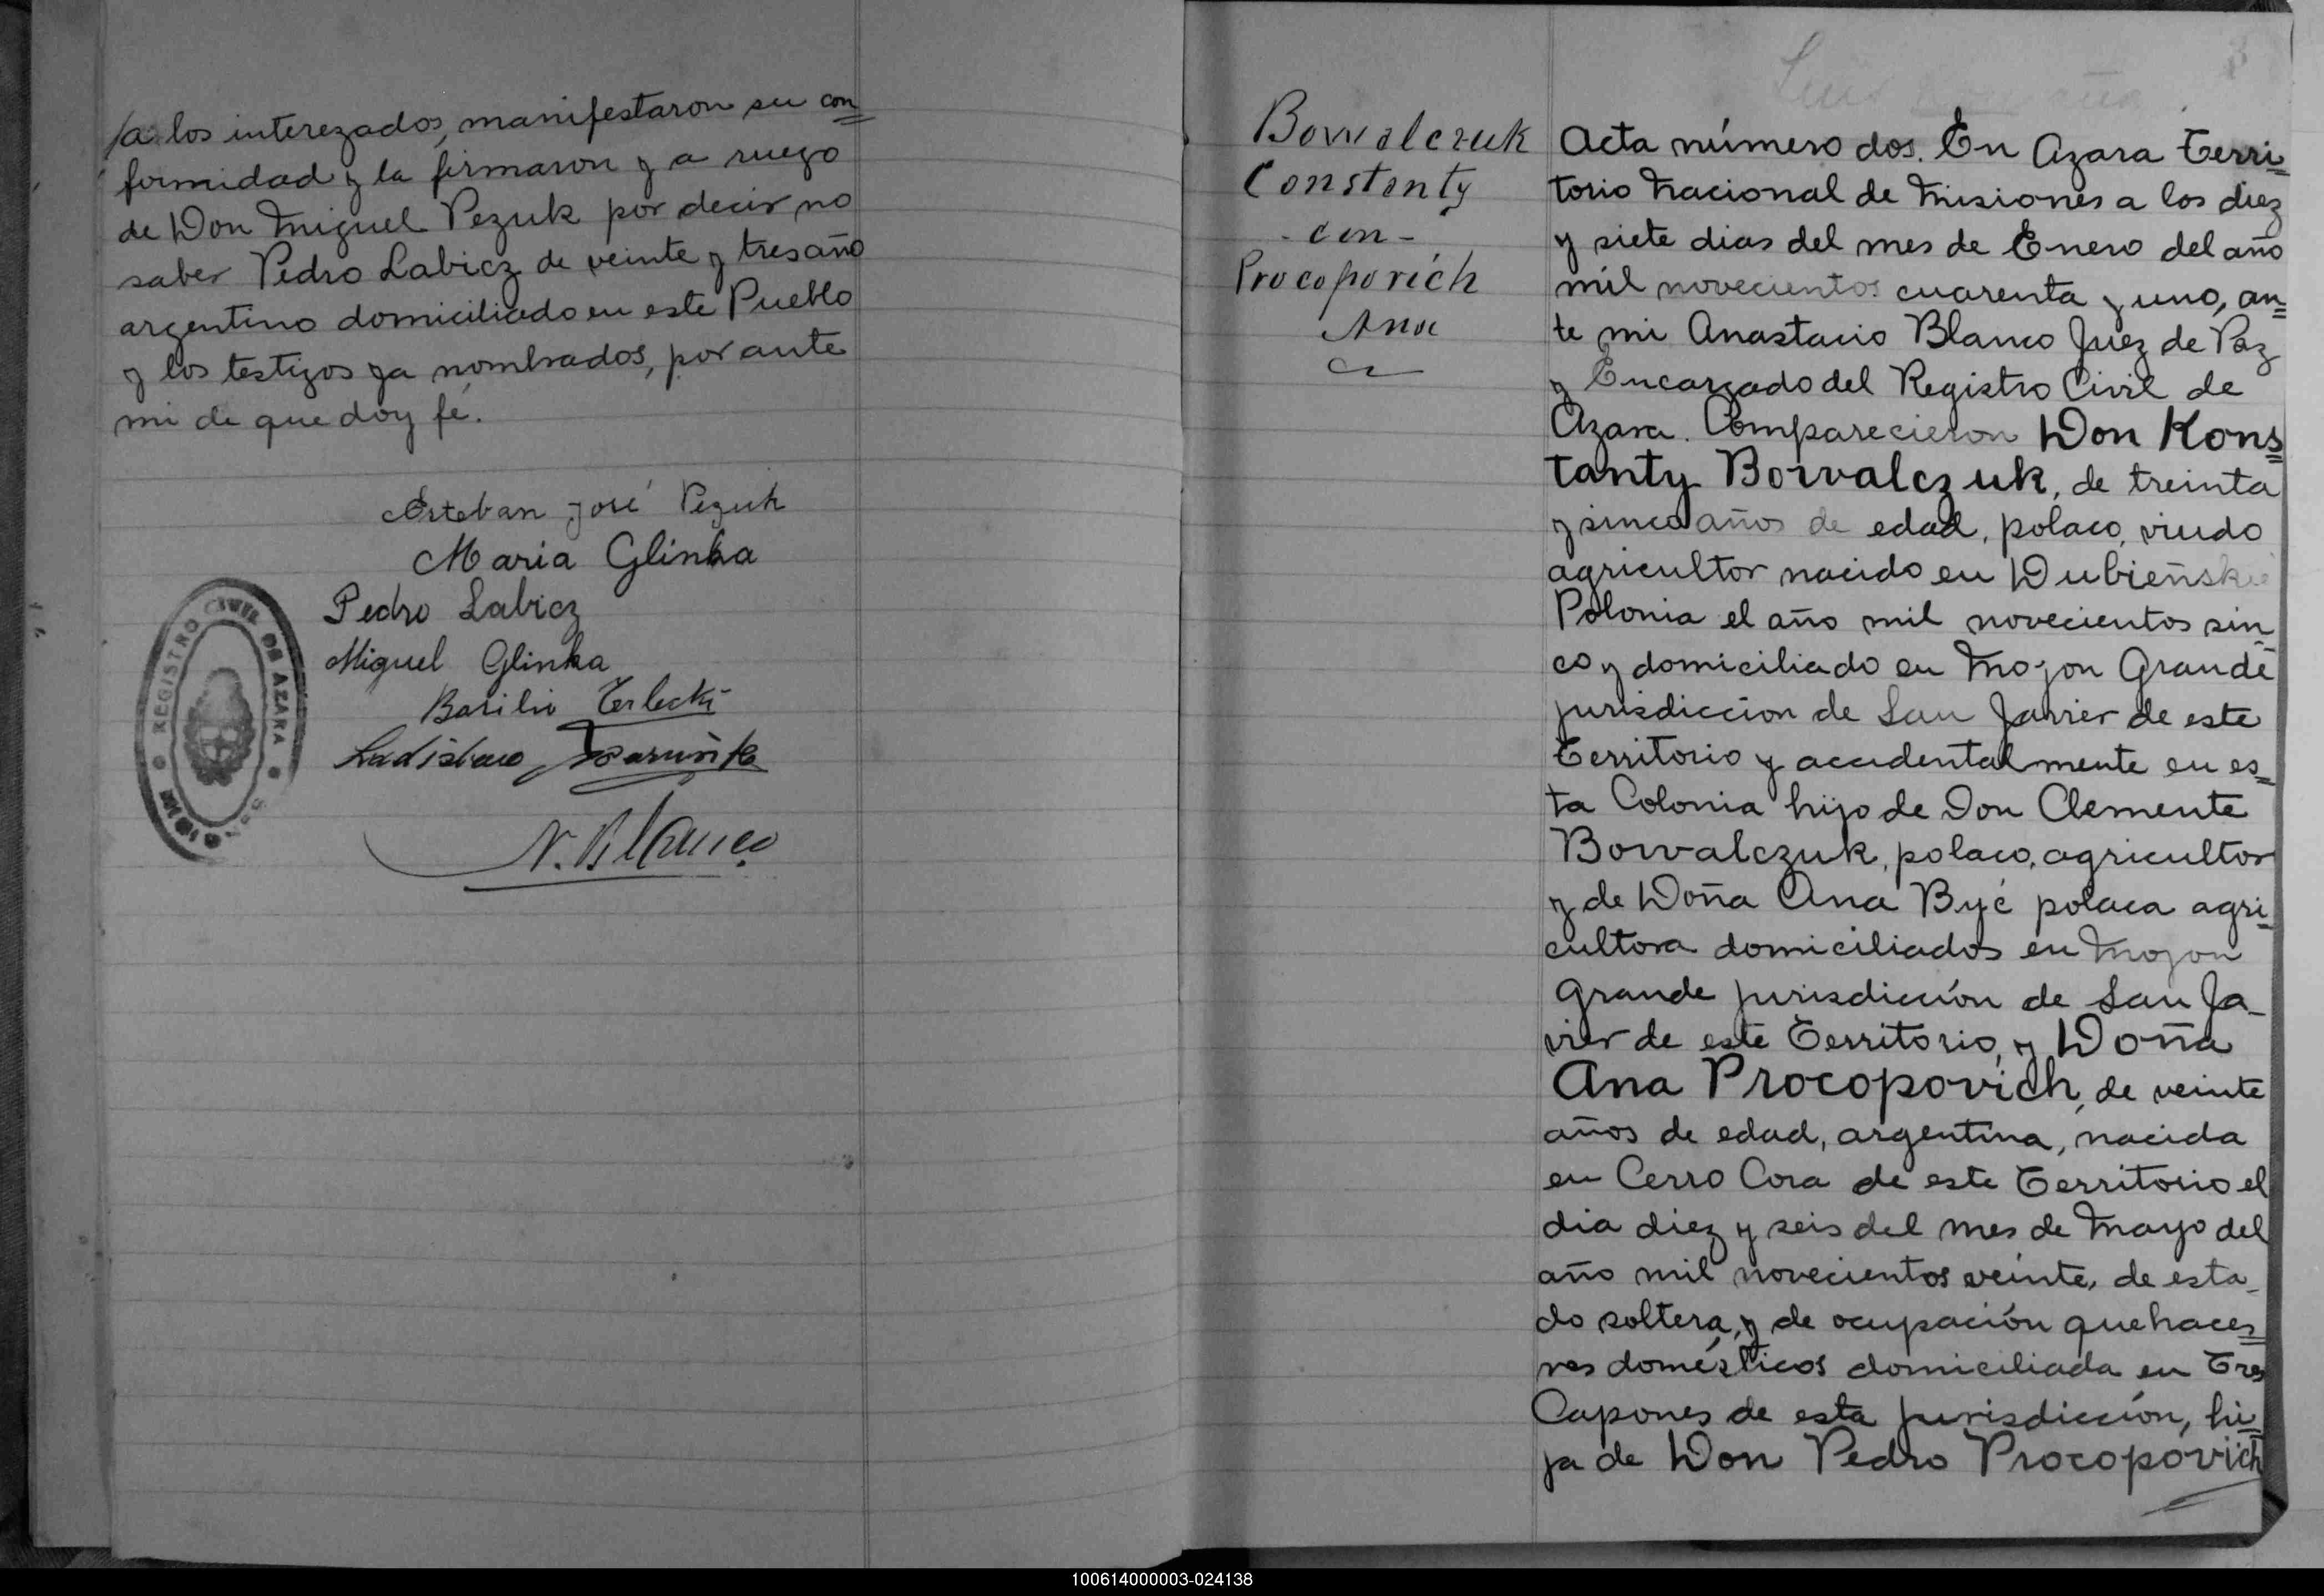 /a los interezados, manifestaron su con
formidad y la firmaron y a ruego
de Don Miguel Pezuk por decir no
saber Pedro Labicz de veinte y tres año
argentino domiciliado en este Pueblo
y los testigos ya nombrados, por ante
mi de que doy fé.
Esteban José Pezuk
Maria Glinka
Pedro Labicz
Miguel Glinka
Basilio Terlecki
Ladislao
REGISTRO CIVIL DE AZARA
N. Blanco
Bowalczuk
Constanty
- con -
Procopovich
Ana
Acta número dos. En Azara Terri
torio Nacional de Misiones a los diez
y siete dias del mes de Enero del año
mil novecientos cuarenta y uno, an
te mi Anastacio Blanco Juez de Paz
y Encargado del Registro Civil de
Azara. Comparecieron Don Kons
tanty Bowalczuk, de treinta
y sinco años de edad, polaco, viudo
agricultor nacido en Dubieñski
Polonia el año mil novecientos sin
co y domiciliado en Mojon Grande
jurisdiccion de San Javier de este
Territorio y accidentalmente en es
ta Colonia hijo de Don Clemente
Bowalczuk, polaco, agricultor
y de Doña Ana Być polaca agri
cultora domiciliados en Mojon
Grande jurisdicción de San Ja
vier de este Territorio, y Doña
Ana Procopovich, de veinte
años de edad, argentina, nacida
en Cerro Cora de este Territorio el
dia diez y seis del mes de Mayo del
año mil novecientos veinte, de esta
do soltera, y de ocupación quehace
res domésticos domiciliada en Tres
Capones de esta jurisdicción, hi
ja de Don Pedro Procopovich
100614000003-024138